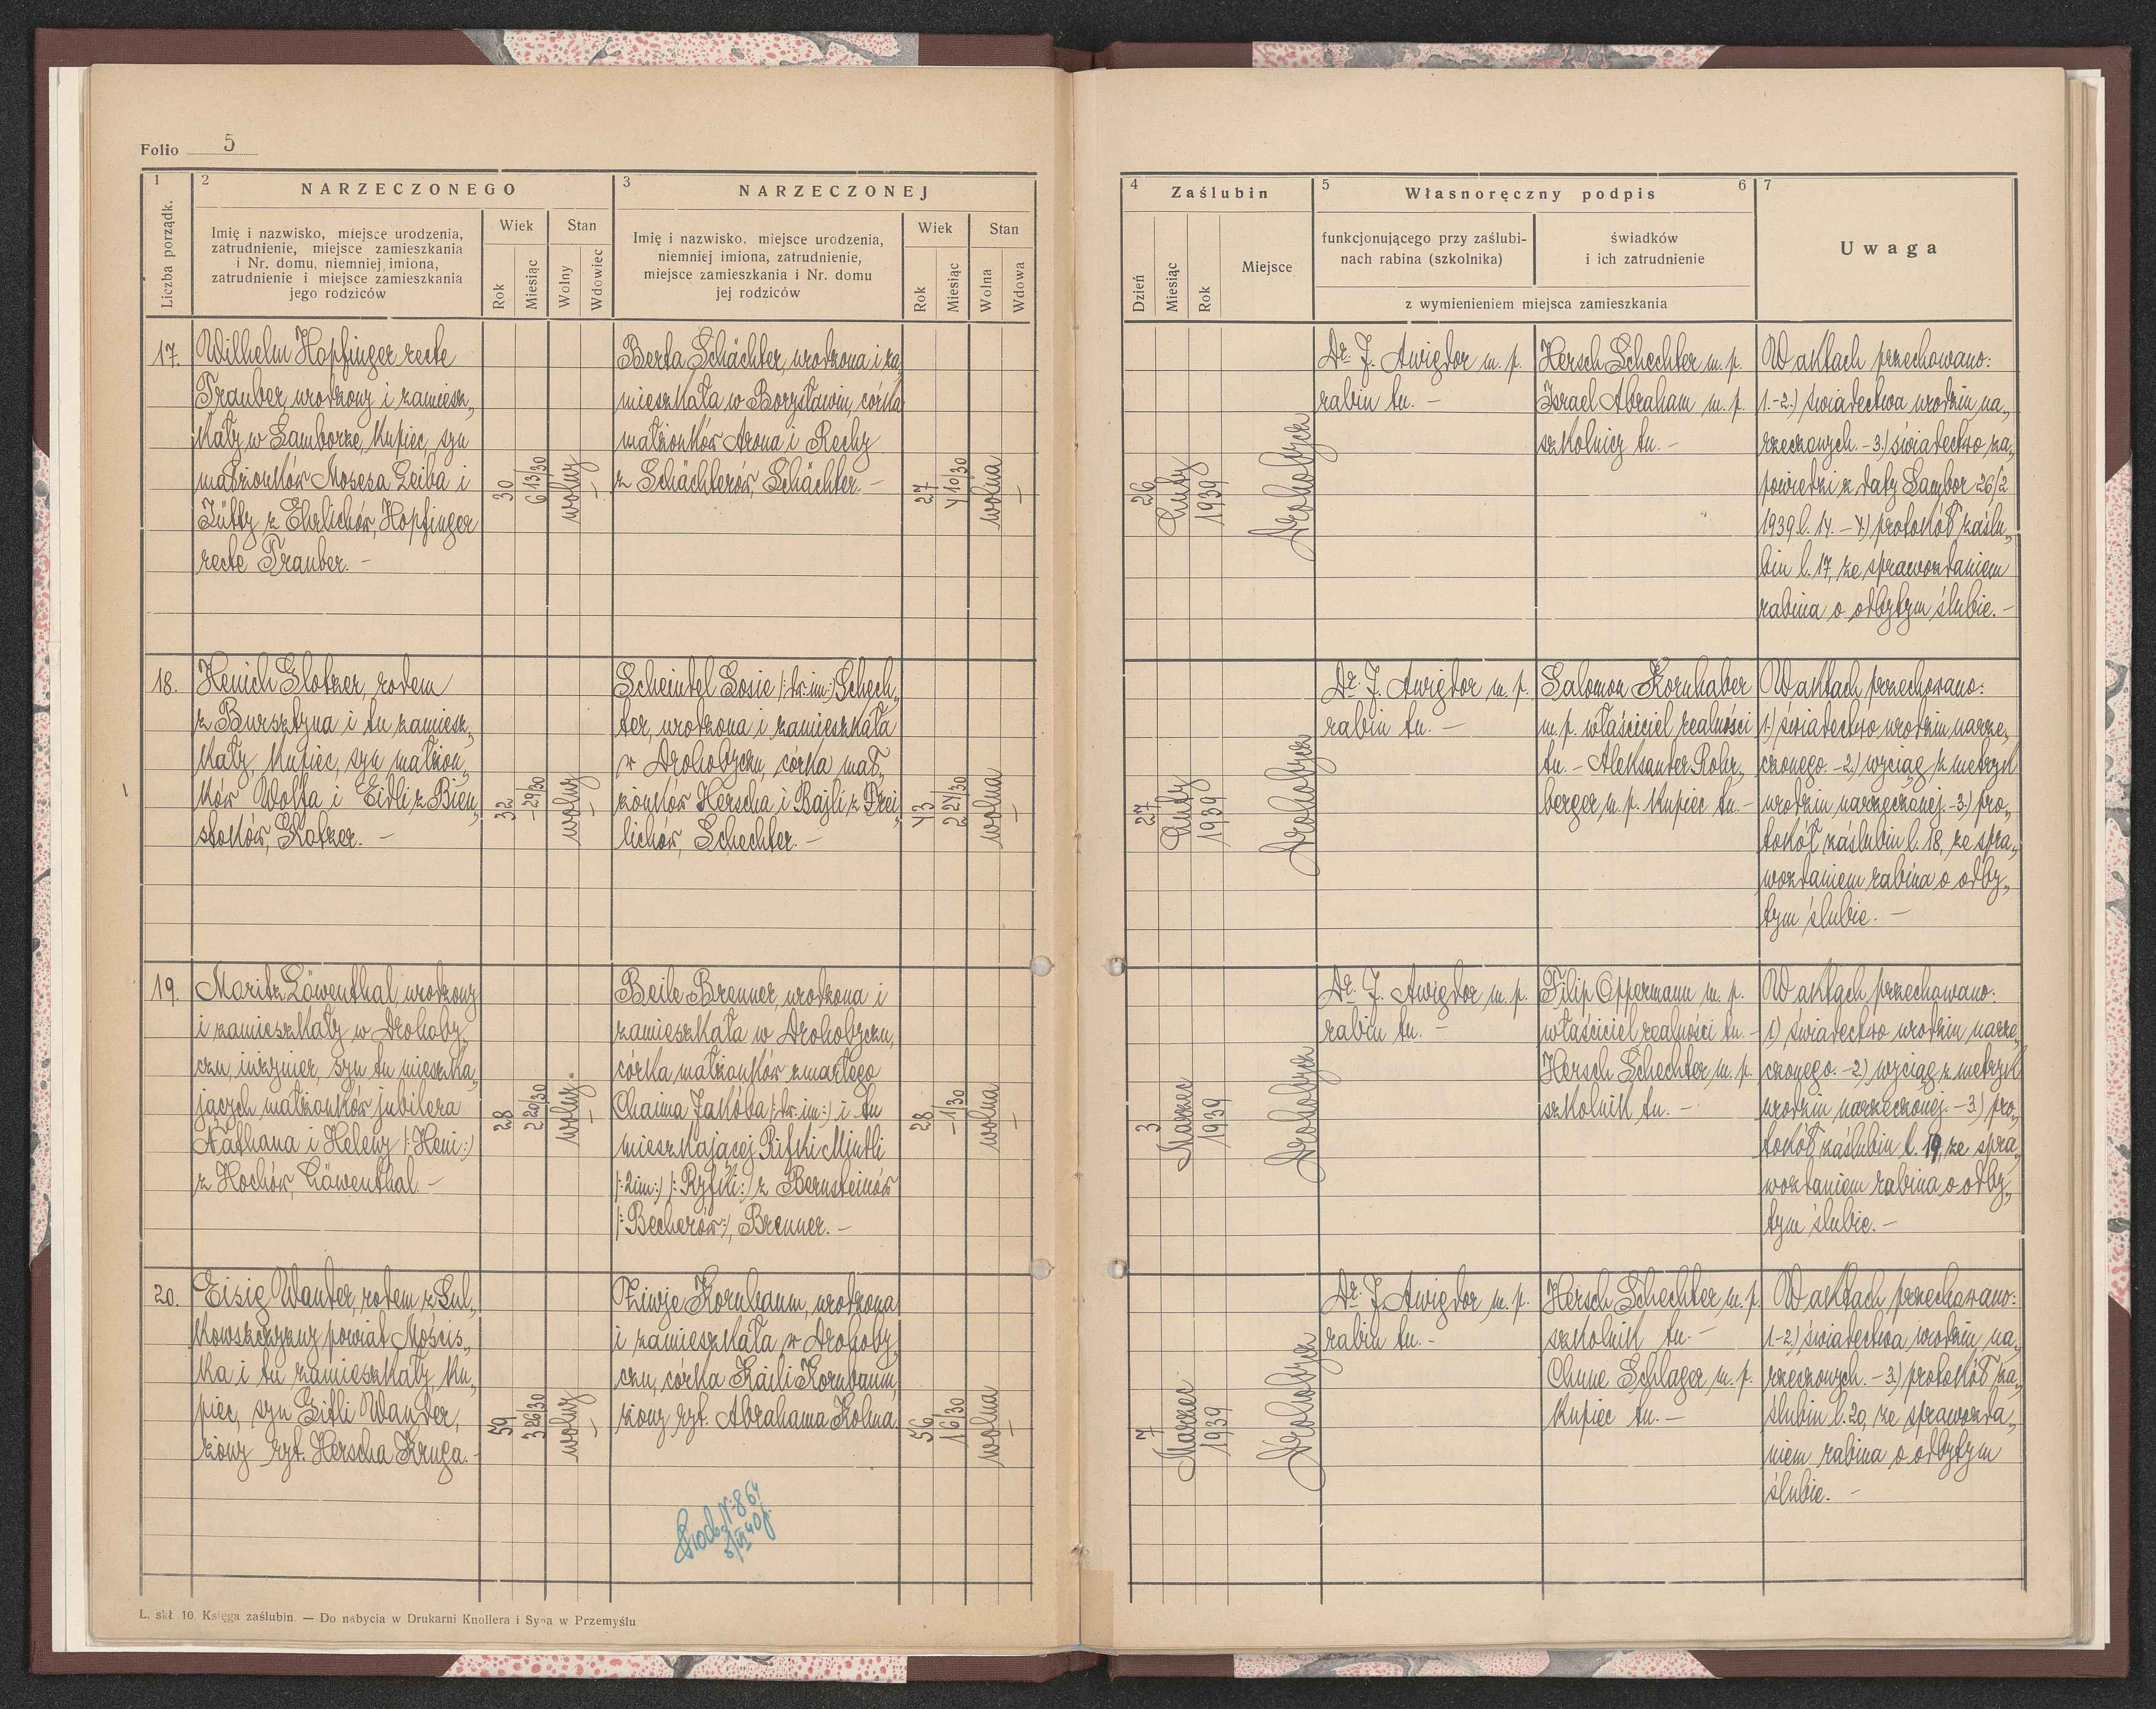 Folio 5
1
2 NARZECZONEGO
3 NARZECZONEJ
Liczba porządk.
Imię i nazwisko, miejsce urodzenia,
zatrudnienie, miejsce zamieszkania
i Nr. domu, niemniej imiona,
zatrudnienie i miejsce zamieszkania
jego rodziców
Wiek
Rok
Miesiąc
Stan
Wolny
Wdowiec
Imię i nazwisko, miejsce urodzenia,
niemniej imiona, zatrudnienie,
miejsce zamieszkania i Nr. domu
jej rodziców
Wiek
Rok
Miesiąc
Stan
Wolna
Wdowa
17.
Wilhelm Hopfinger recte
Trauber, urodzony i zamiesz„
kały w Samborze, kupiec, syn
małżonków Mosesa Leiba i
Jütty z Ehrlichów, Hopfinger
recte Trauber. –
30
6 13/30
wolny
–
Berta Schächter, urodzona i za„
mieszkała w Borysławiu, córka
małżonków Arona i Rechy
z Schächterów, Schächter. –
27
4 10/30
wolna
–
18.
Henich Glotzer, rodem
z Bursztyna i tu zamiesz„
kały, kupiec, syn małżon„
ków Wolfa i Eidli z Bien„
stoków, Glotzer. –
32
– 29/30
wolny
–
Scheindel Losie /:dr. im:/ Schech„
ter, urodzona i zamieszkała
w Drohobyczu, córka mał„
żonków Herscha i Bajli z Frei„
lichów, Schechter. –
43
2 24/30
wolna
–
19.
Moritz Löwenthal, urodzony
i zamieszkały w Drohoby„
czu, inżynier, syn tu mieszka„
jących małżonków jubilera
Nathana i Heleny /:Heni:/
z Hochów, Löwenthal –
28
2 20/30
wolny.
–
Beile Brenner, urodzona i
zamieszkała w Drohobyczu,
córka małżonków zmarłego
Chaima Jakóba /:dr. im:/ i tu
mieszkającej Rifki Mindli
/:2im:/ /:Ryfki:/ z Bernsteinów
/:Becherów:/, Brenner. –
28
– 1/30
wolna
–
20.
Eisig Wander, rodem z Sul„
kowszczyzny powiat Mościs„
ka i tu zamieszkały, ku„
piec, syn Gitli Wander,
żony ryt. Herscha Kruga. –
59
3 26/30
wolny
–
Ziwje Kornbaum, urodzona
i zamieszkała w Drohoby„
czu, córka Kaili Kornbaum,
żony ryt. Abrahama Kolma
56
1 6/30
wolna
–
N: 864
3/VI 40 r.
L. skł. 10. Księga zaślubin. — Do nabycia w Drukarni Knollera i Syna w Przemyślu
4 Zaślubin
5 Własnoręczny podpis 6
7
Dzień
Miesiąc
Rok
Miejsce
funkcjonującego przy zaślubi-
nach rabina (szkolnika)
świadków
i ich zatrudnienie
z wymienieniem miejsca zamieszkania
Uwaga
26
Luty
1939
Drohobycz
Dr. J. Awigdor m. p.
rabin tu. –
Hersch Schechter m. p.
Israel Abraham m. p.
szkolnicy tu. –
W aktach przechowano:
1.-2.) świadectwa urodzin na„
rzeczonych. – 3.) świadectwo za„
powiedzi z daty Sambor 26/2
1939 l. 14. – 4.) protokół zaślu„
bin l. 17, ze sprawozdaniem
rabina o odbytym ślubie. –
27
Luty
1939
Drohobycz
Dr. J. Awigdor m. p.
rabin tu. –
Salomon Kornhaber
m. p. właściciel realności
tu. – Aleksander Rohr„
berger m. p. kupiec tu. –
W aktach przechowano:
1.) świadectwo urodzin narze„
czonego. – 2.) wyciąg z metryk
urodzin narzeczonej. – 3.) pro„
tokół zaślubin l. 18, ze spra„
wozdaniem rabina o odby„
tym ślubie. –
3
Marzec
1939
Drohobycz
Dr. J. Awigdor m. p.
rabin tu. –
Filip Oppermann m. p.
właściciel realności tu. –
Hersch Schechter m. p.
szkolnik tu. –
W aktach przechowano:
1.) świadectwo urodzin narze„
czonego. – 2.) wyciąg z metryk
urodzin narzeczonej. – 3.) pro„
tokół zaślubin l. 19, ze spra„
wozdaniem rabina o odby„
tym ślubie. –
7
Marzec
1939
Drohobycz
Dr. J. Awigdor m. p.
rabin tu. –
Hersch Schechter m. p.
szkolnik tu. –
Chune Schlager m. p.
kupiec tu. –
W aktach przechowano:
1.-2.) świadectwa urodzin na„
rzeczonych. – 3.) protokół za„
ślubin l. 20, ze sprawozda„
niem rabina o odbytym
ślubie. –